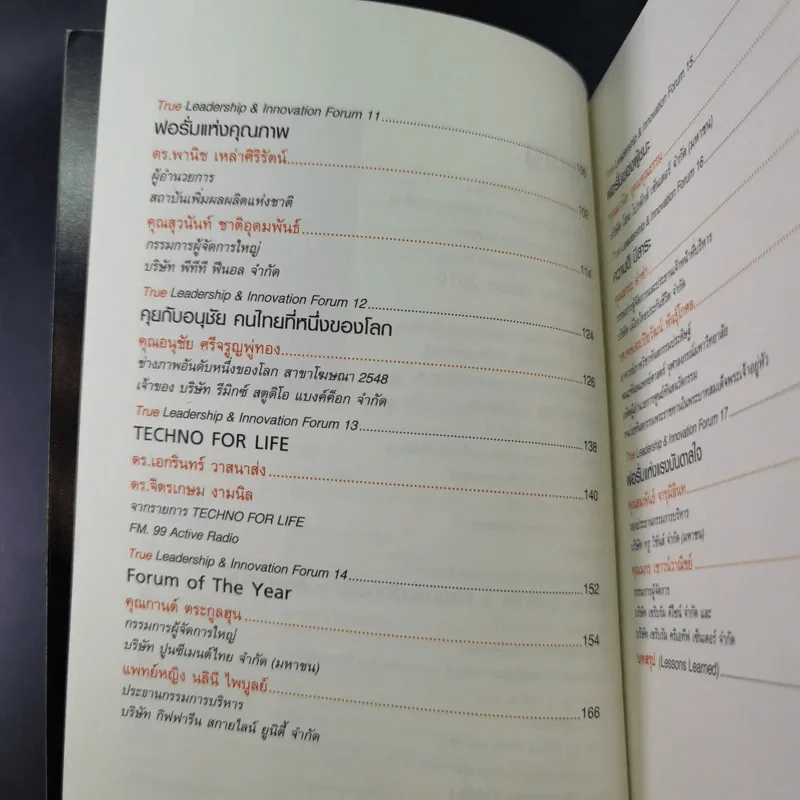 True Leadership & Innovation Forum 11
ฟอรั่มแห่งคุณภาพ 106
ดร.พานิช เหล่าศิริรัตน์
ผู้อำนวยการ 109
สถาบันเพิ่มผลผลิตแห่งชาติ
คุณสุวนันท์ ชาติอุดมพันธ์
กรรมการผู้จัดการใหญ่ 114
บริษัท พีทีที ฟีนอล จำกัด
True Leadership & Innovation Forum 12
คุยกับอนุชัย คนไทยที่หนึ่งของโลก 124
คุณอนุชัย ศรีจรูญพู่ทอง
ช่างภาพอันดับหนึ่งของโลก สาขาโฆษณา 2548 126
เจ้าของ บริษัท รีมิกซ์ สตูดิโอ แบงค์ค็อก จำกัด
True Leadership & Innovation Forum 13 138
TECHNO FOR LIFE
ดร.เอกรินทร์ วาสนาส่ง
ดร.จิตรเกษม งามนิล 140
จากรายการ TECHNO FOR LIFE
FM. 99 Active Radio
True Leadership & Innovation Forum 14 152
Forum of The Year
คุณกานต์ ตระกูลฮุน 154
กรรมการผู้จัดการใหญ่
บริษัท ปูนซีเมนต์ไทย จำกัด (มหาชน)
แพทย์หญิง นลินี ไพบูลย์ 166
ประธานกรรมการบริหาร
บริษัท กิฟฟารีน สกายไลน์ ยูนิตี้ จำกัด
True Leadership & Innovation Forum 15
True Leadership & Innovation Forum 16
ความดี มีสาระ
True Leadership & Innovation Forum 17
ฟอรั่มแห่งแรงบันดาลใจ
รองประธานกรรมการบริหาร
บริษัท ทรู วิชั่นส์ จำกัด (มหาชน)
กรรมการผู้จัดการ
บริษัท เซรีบรัม ดีไซน์ จำกัด และ
บทสรุป (Lessons Learned)